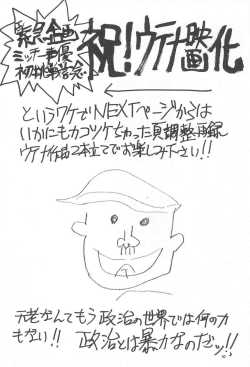 緊急企画
ミッチー声優
初挑戦
祝！ウテナ映画化
というワケでNEXTページからは
いかにもカコツケちゃった具調整再録
ウテナ作品2本立てでお楽しみ下さい!!
元老なんてもう政治の世界では何の力
もない!! 政治とは暴力なのだッ!!